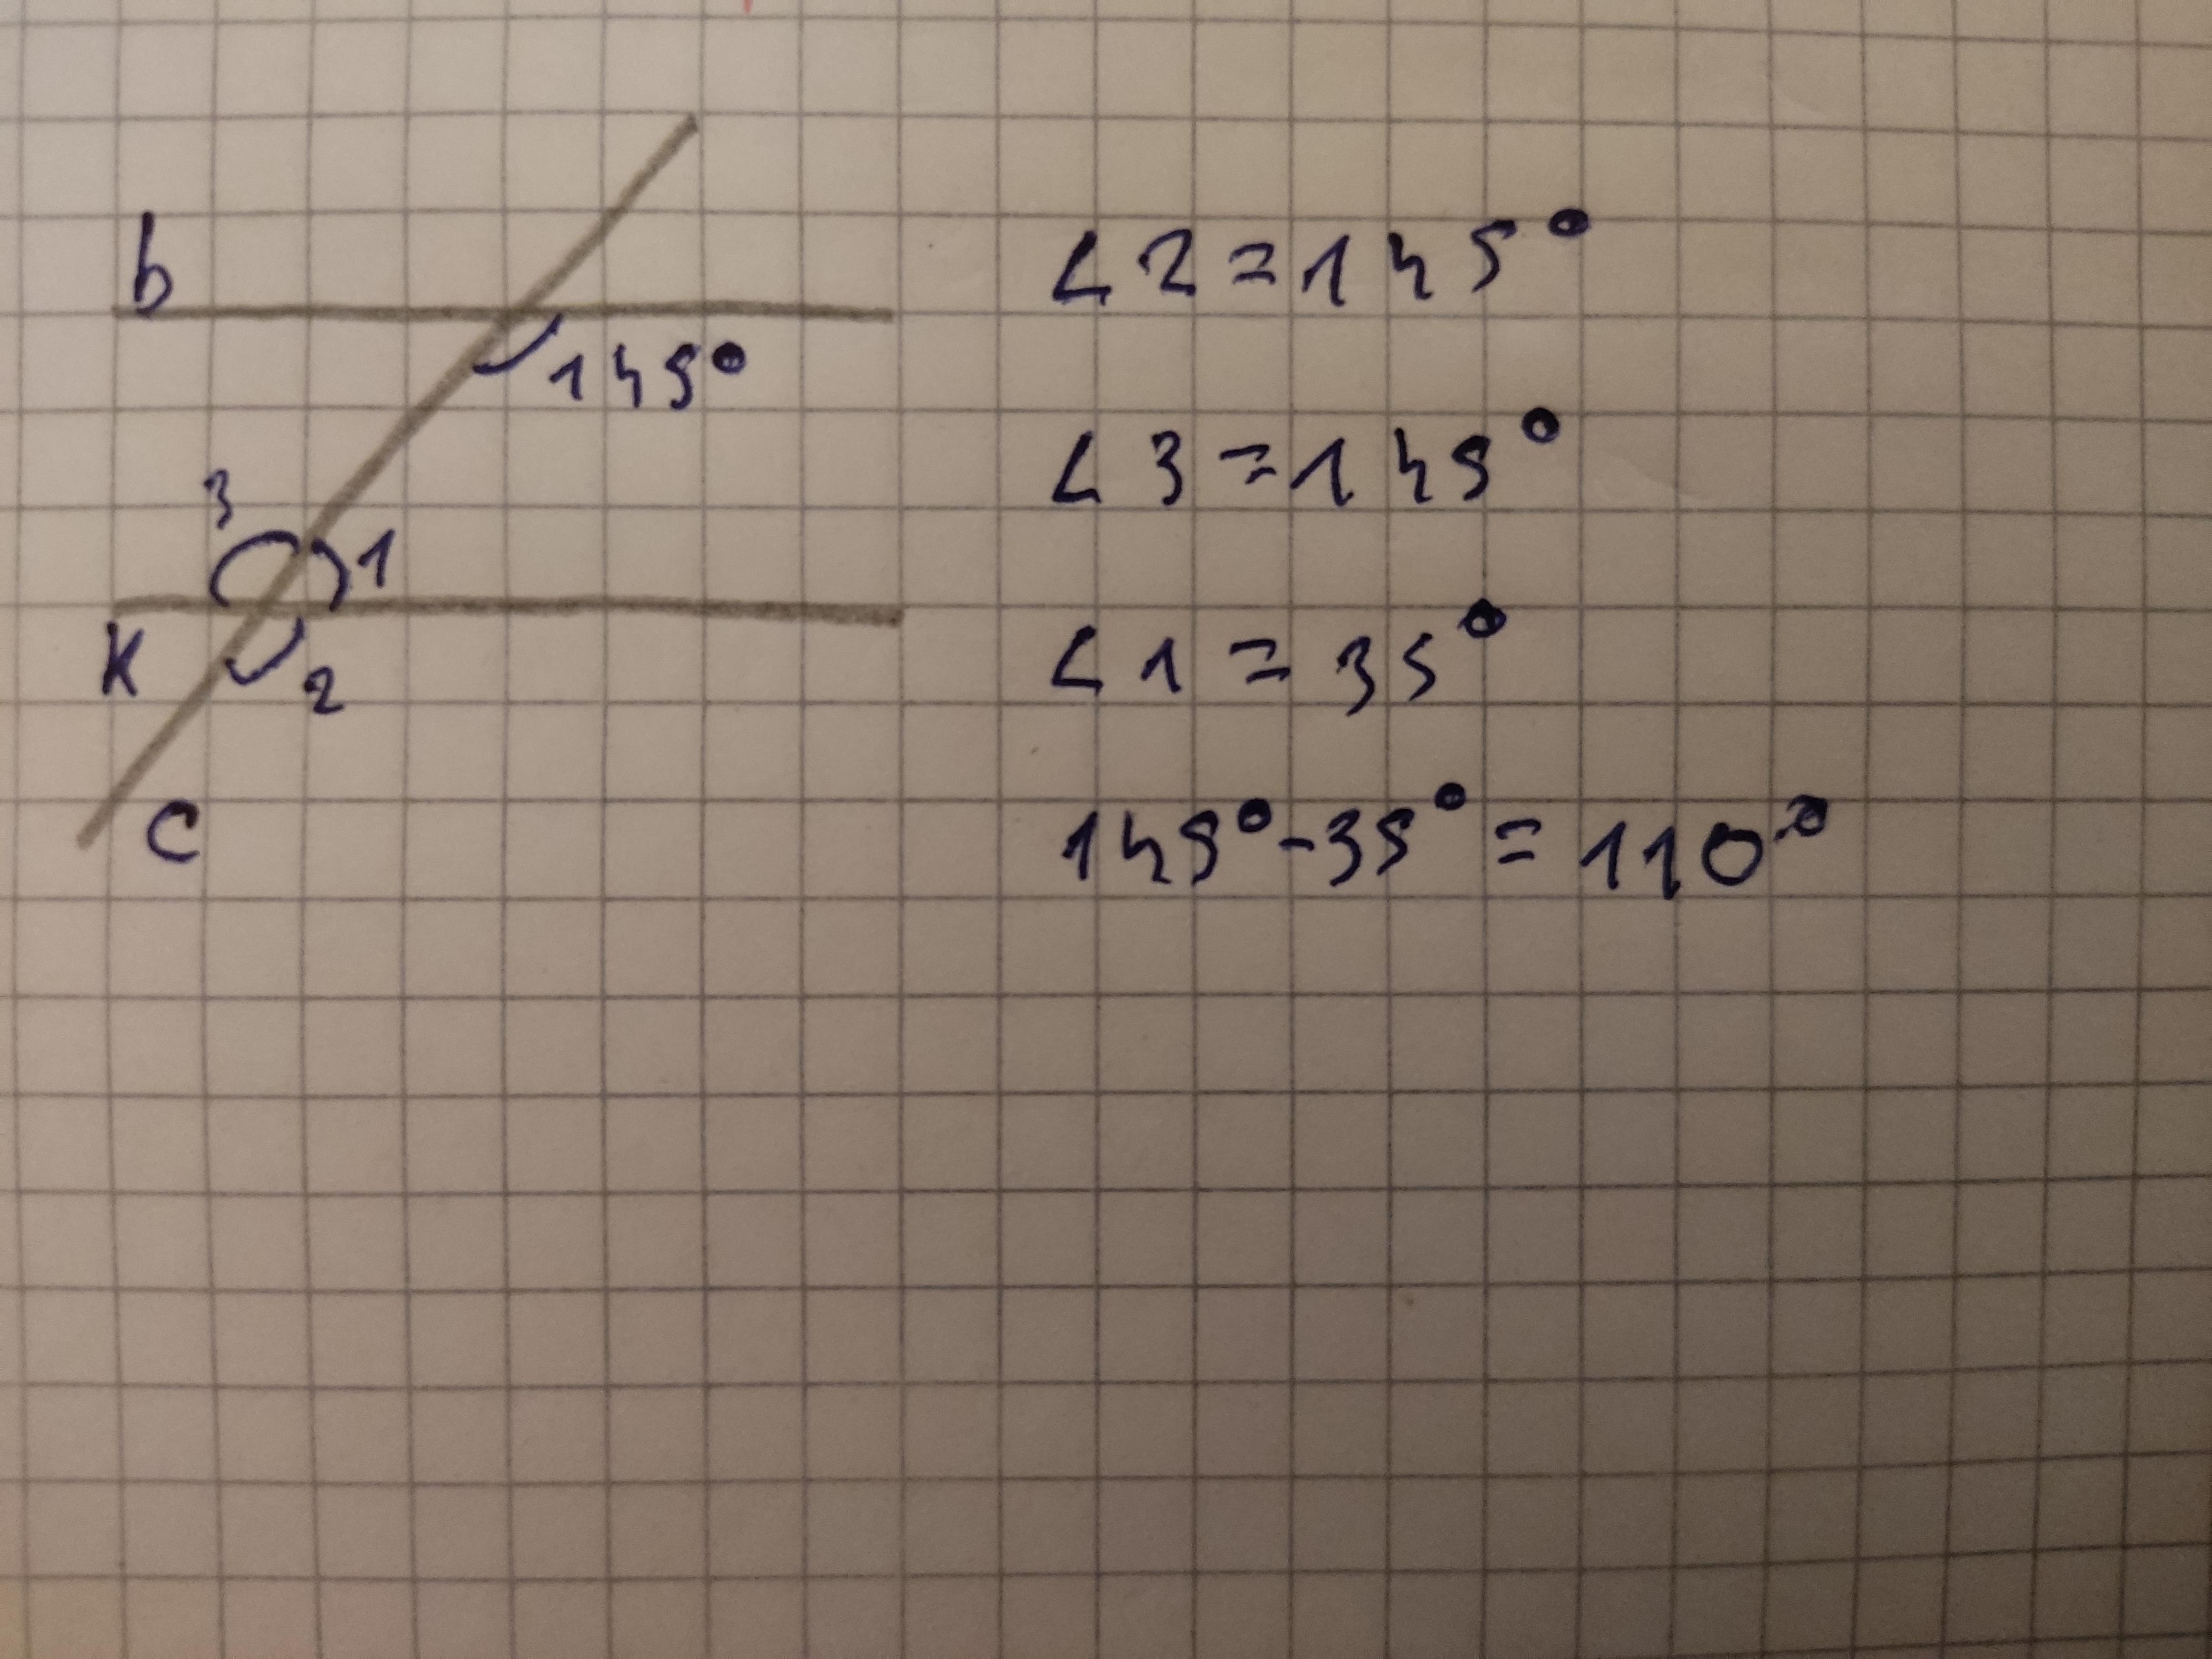 b
145°
3
1
K
2
C
∠2=145°
∠3=145°
∠1=35°
145°-35°=110°